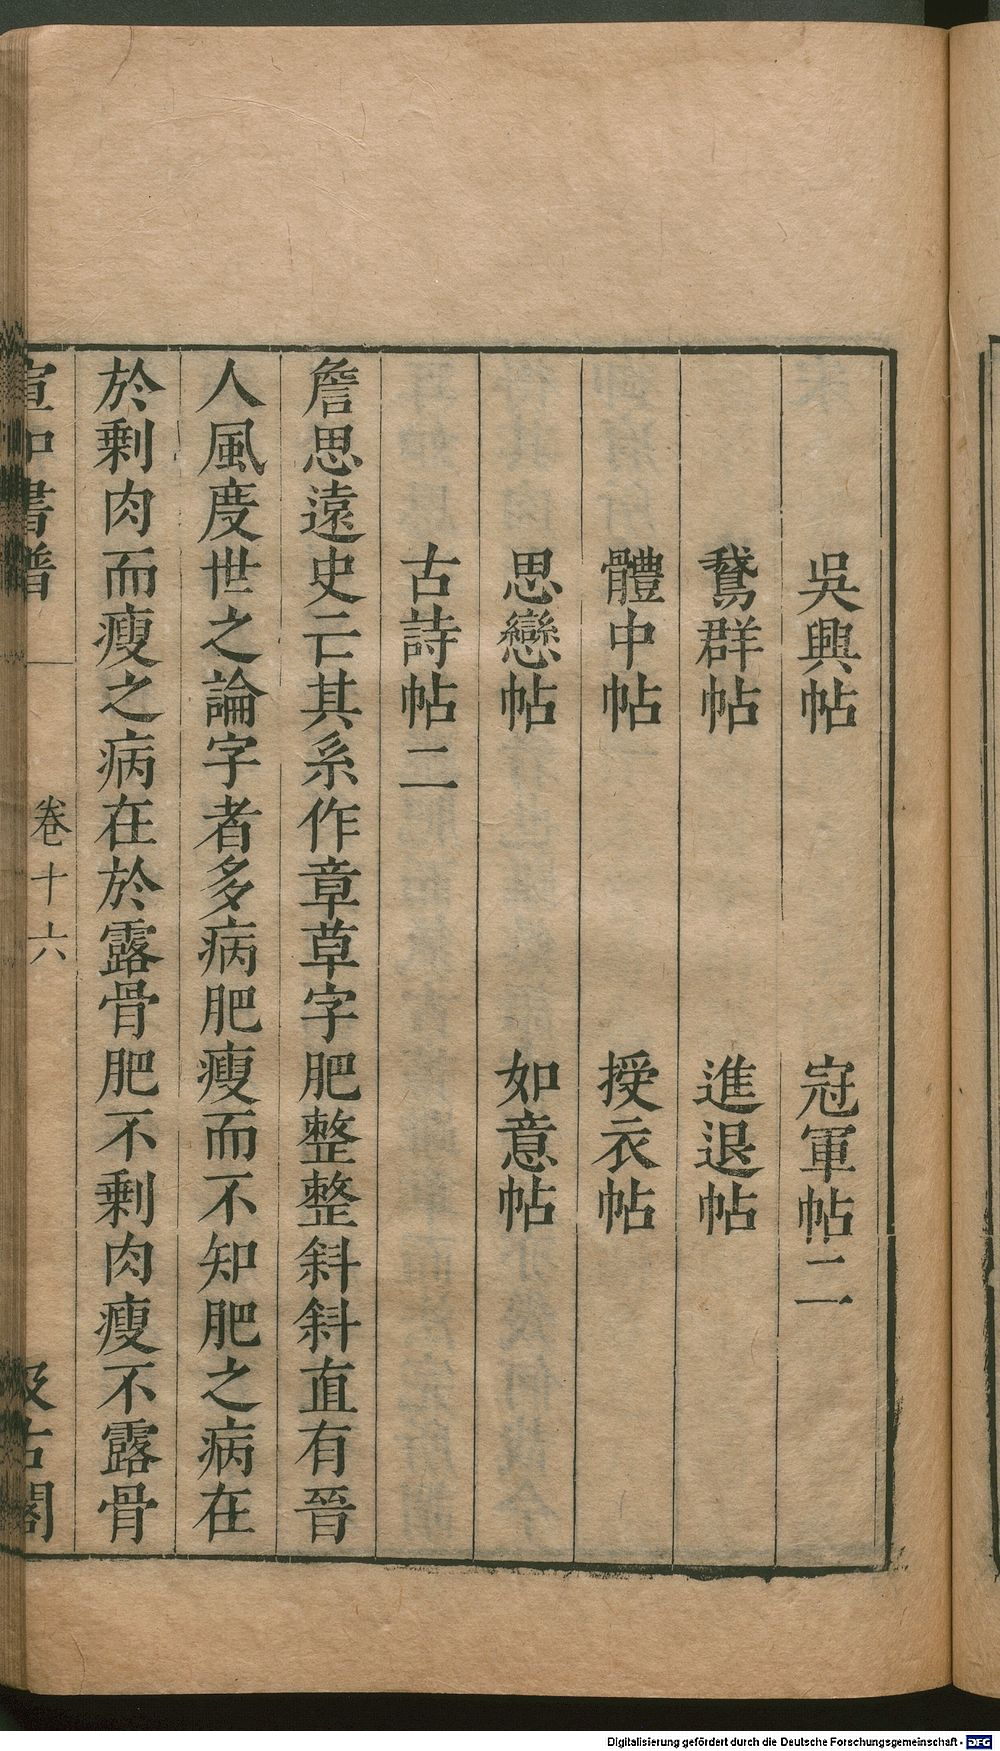 吳興帖 冠軍帖二
鵞群帖 進退帖
體中帖 授衣帖
思戀帖 如意帖
古詩帖二
詹思遠史亡其系作章草字肥整整斜斜直有晉
人風度世之論字者多病肥瘦而不知肥之病在
於剩肉而瘦之病在於露骨肥不剩肉瘦不露骨
宣和書譜 卷十六 汲古閣
Digitalisierung gefördert durch die Deutsche Forschungsgemeinschaft - DFG